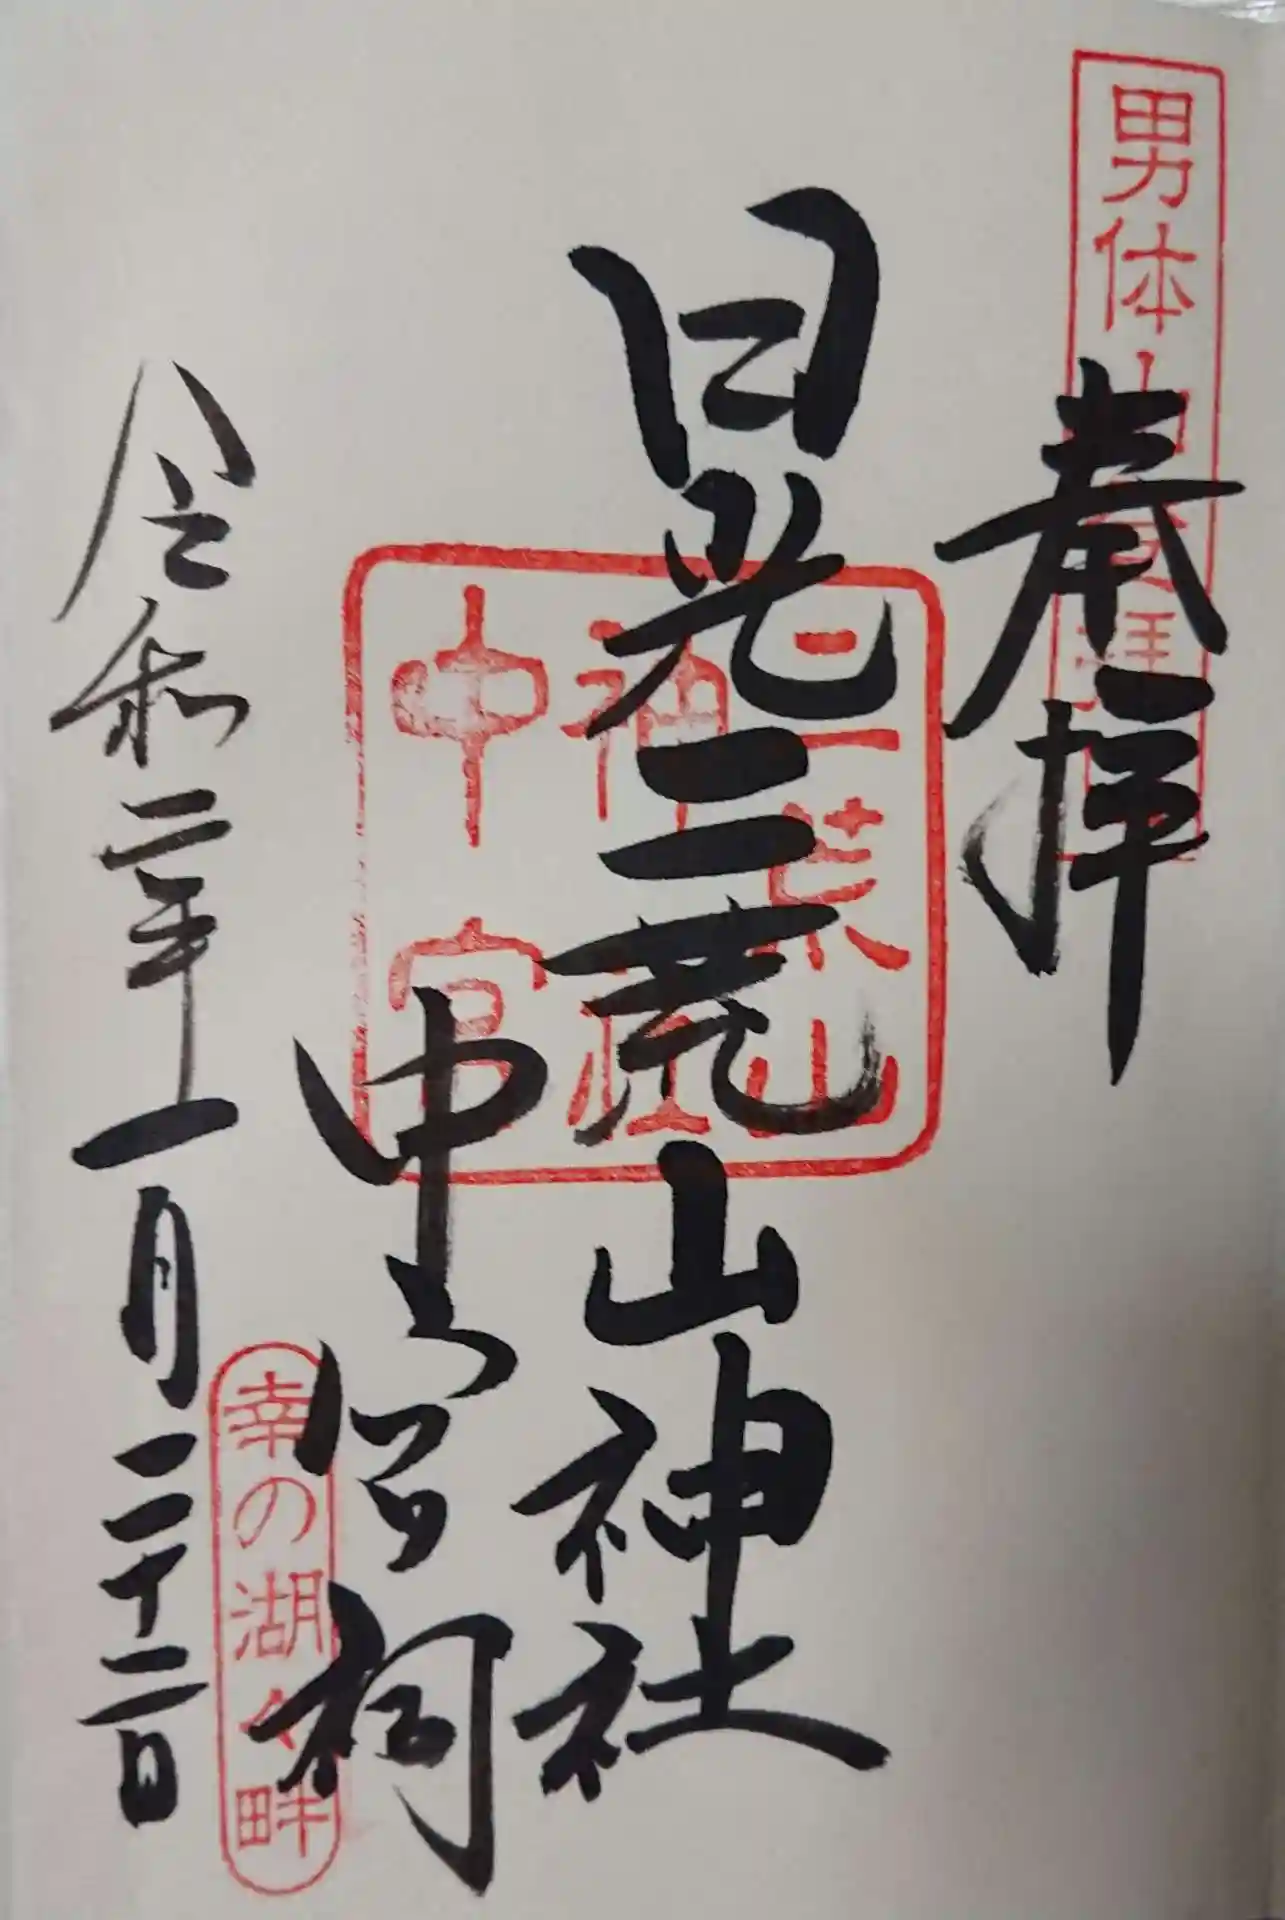 男体山登拝
奉拝
日光二荒山神社
二荒山
神社
中宮
中宮祠
幸の湖々畔
令和二年一月二十二日